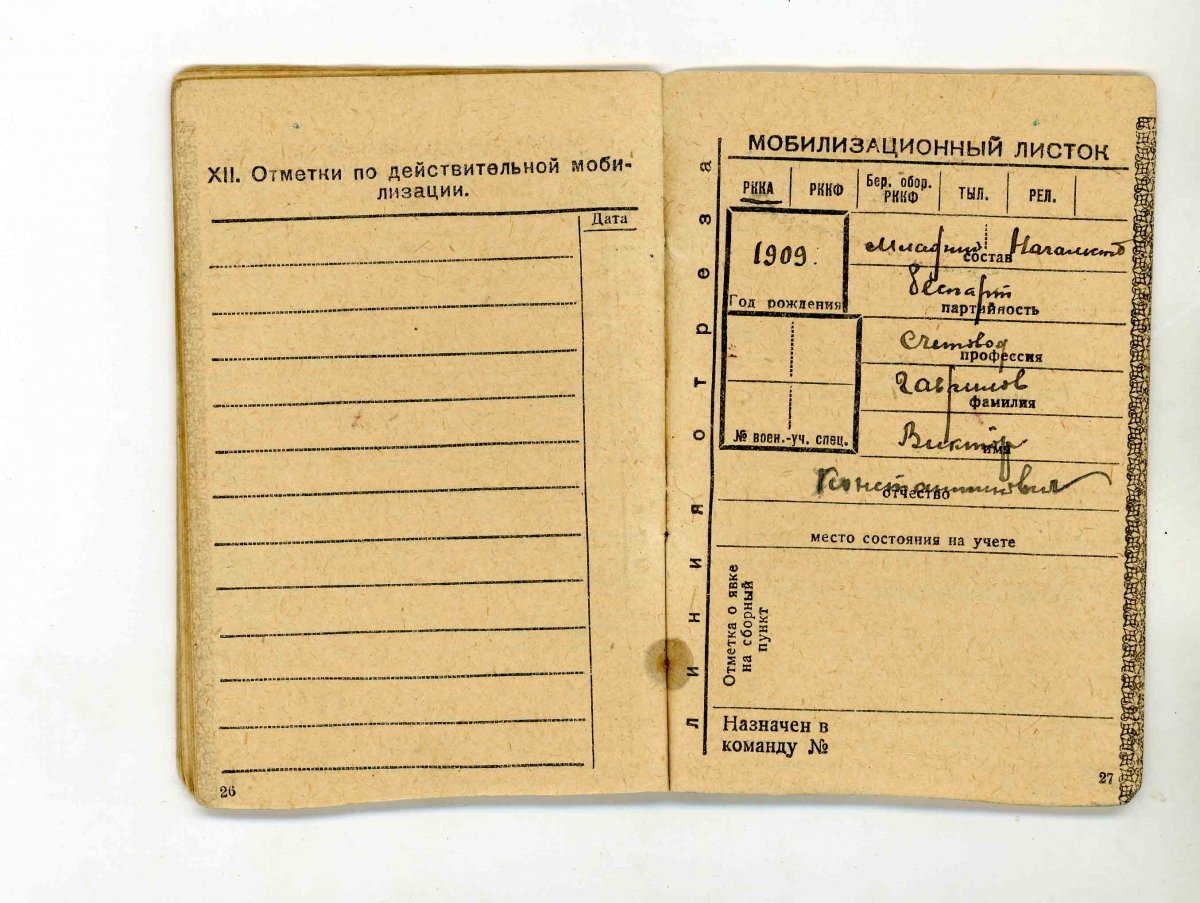 XII. Отметки по действительной моби-
лизации.
Дата
26
Линия отреза
МОБИЛИЗАЦИОННЫЙ ЛИСТОК
РККА РККФ Бер. обор. РККФ ТЫЛ. РЕЛ.
1909.
Год рождения
состав
Беспарт
партийность
Счетовод
профессия
Гаврилов
фамилия
№ воен.-уч. спец.
Виктор
имя
Константинович
отчество
место состояния на учете
Отметка о явке
на сборный
пункт
Назначен в
команду №
27